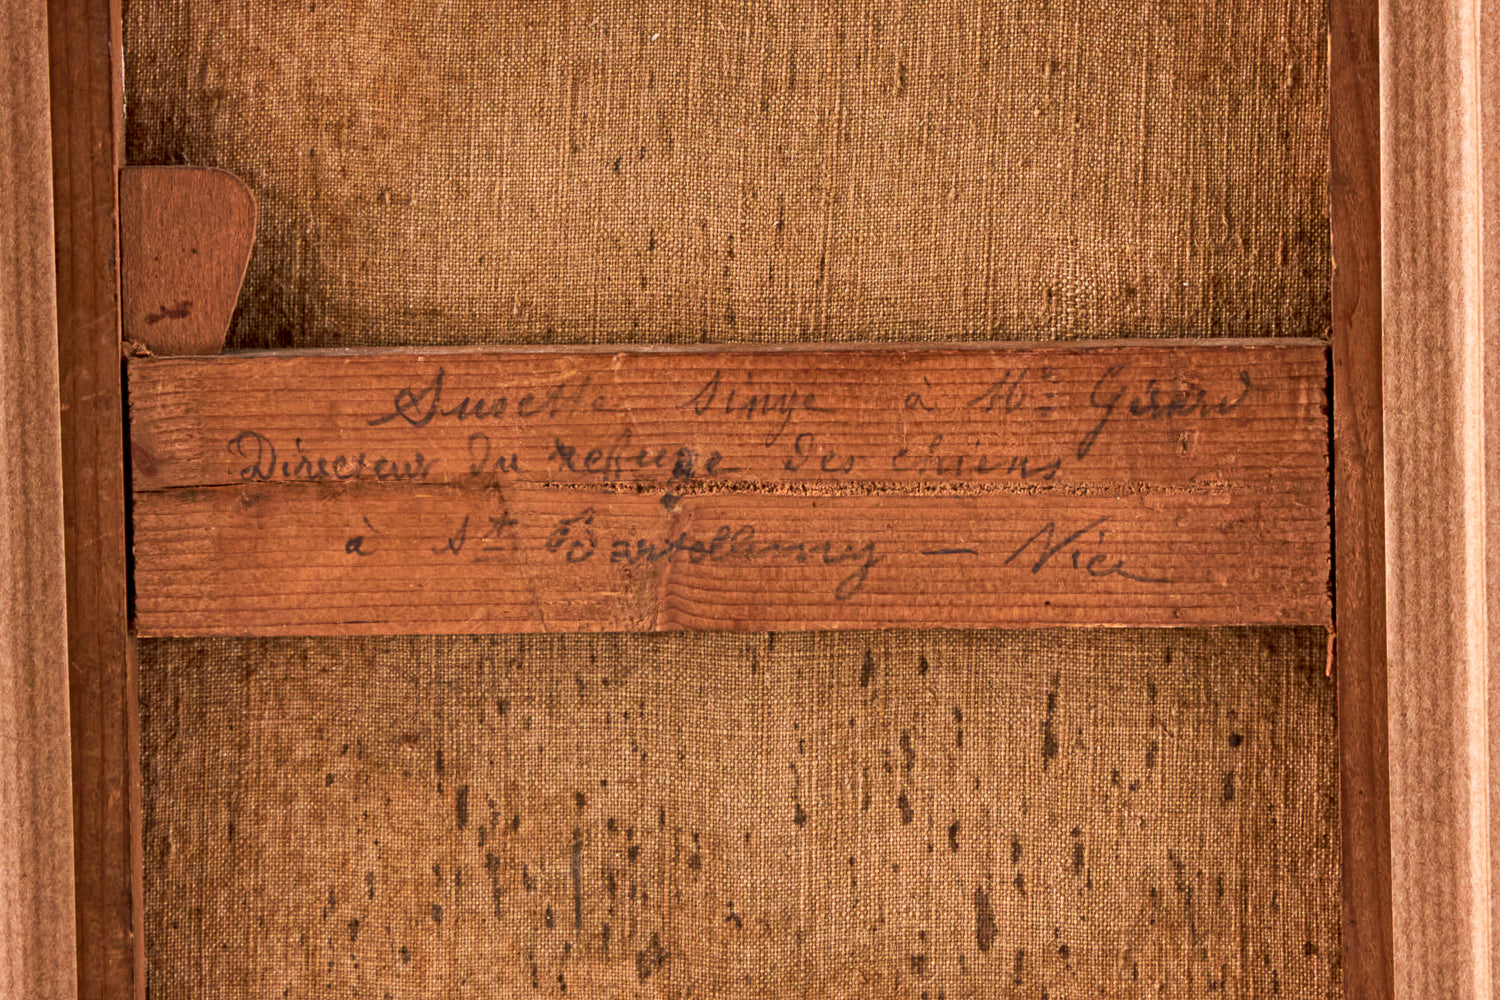 Susette singe à Mr Girard
Directeur du refuge des chiens
à St Bartollemy — Nice